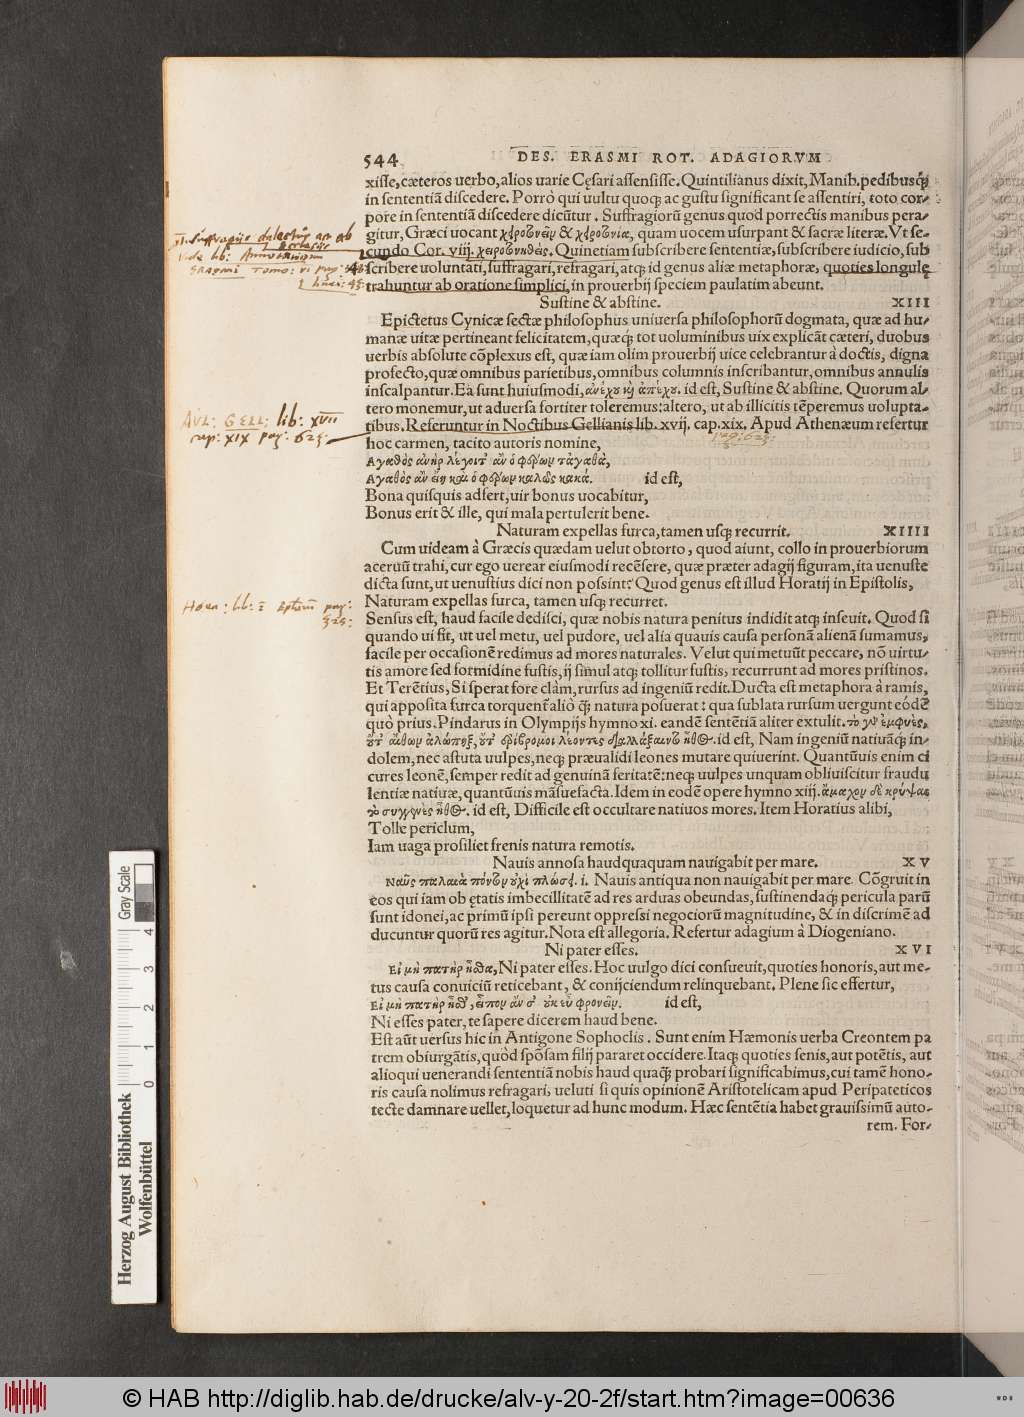 544 DES. ERASMI ROT. ADAGIORVM
xisse, cæteros uerbo, alios uarie Cęsari assensisse. Quintilianus dixit, Manib. pedibusq́;
in sententiã discedere. Porrò qui uultu quoq; ac gustu significant se assentiri, toto cor-
pore in sententiã discedere dicũtur. Suffragiorũ genus quod porrectis manibus pera-
gitur, Græci uocant χειροτονεῖν & χειροτονίας, quam uocem usurpant & sacræ literæ. Vt se-
cundo Cor. viij. χειροτονηθείς. Quinetiam subscribere sententiæ, subscribere iudicio, sub
scribere uoluntati, suffragari, refragari, atq; id genus aliæ metaphoræ, quoties longulę
trahuntur ab oratione simplici, in prouerbij speciem paulatim abeunt.
Sustine & abstine. XIII
Epictetus Cynicæ sectæ philosophus uniuersa philosophorũ dogmata, quæ ad hu-
manæ uitæ pertineant felicitatem, quæq́; tot uoluminibus uix explicãt cæteri, duobus
uerbis absolute cõplexus est, quæ iam olim prouerbij uice celebrantur à doctis, digna
profecto, quæ omnibus parietibus, omnibus columnis inscribantur, omnibus annulis
insculpantur. Ea sunt huiusmodi, ἀνέχου καὶ ἀπέχου. id est, Sustine & abstine. Quorum al-
tero monemur, ut aduersa fortiter toleremus: altero, ut ab illicitis tẽperemus uolupta-
tibus. Referuntur in Noctibus Gellianis lib. xvij. cap. xix. Apud Athenæum refertur
hoc carmen, tacito autoris nomine,
Ἀγαθὸς ἀνὴρ λέγοιτ᾽ ἂν ὁ φέρων τἀγαθὰ,
Ἀγαθὸς ἂν εἴη καὶ ὁ φέρων καλῶς κακά. id est,
Bona quisquis adfert, uir bonus uocabitur,
Bonus erit & ille, qui mala pertulerit bene.
Naturam expellas furca, tamen usq; recurrit. XIIII
Cum uideam à Græcis quædam uelut obtorto, quod aiunt, collo in prouerbiorum
aceruũ trahi, cur ego uerear eiusmodi recẽsere, quæ præter adagij figuram, ita uenuste
dicta sunt, ut uenustius dici non possint? Quod genus est illud Horatij in Epistolis,
Naturam expellas furca, tamen usq; recurret.
Sensus est, haud facile dedisci, quæ nobis natura penitus indidit atq; inseuit. Quod si
quando ui fit, ut uel metu, uel pudore, uel alia quauis causa personã alienã sumamus,
facile per occasionẽ redimus ad mores naturales. Velut qui metuũt peccare, nõ uirtu-
tis amore sed formidine fustis, ij simul atq; tollitur fustis, recurrunt ad mores pristinos.
Et Terẽtius, Si sperat fore clàm, rursus ad ingeniũ redit. Ducta est metaphora à ramis,
qui apposita furca torquent̃ aliò q̃; natura posuerat: qua sublata rursum uergunt eódẽ
quò prius. Pindarus in Olympijs hymno xi. eandẽ sentẽtiã aliter extulit. τὸ γὰρ ἐμφυὲς,
οὔτ᾽ αἴθων ἀλώπηξ, οὔτ᾽ ἐρίβρομοι λέοντες διαλλάξαιντο ἦθος. id est, Nam ingeniũ natiuãq; in-
dolem, nec astuta uulpes, neq; præualidi leones mutare quiuerint. Quantũuis enim ci
cures leonẽ, semper redit ad genuinã feritatẽ: neq; uulpes unquam obliuiscitur fraudu
lentiæ natiuæ, quantũuis mãsuefacta. Idem in eodẽ opere hymno xiij. ἄμαχον δὲ κρύψαι
τὸ συγγενὲς ἦθος. id est, Difficile est occultare natiuos mores. Item Horatius alibi,
Tolle periclum,
Iam uaga prosiliet frenis natura remotis.
Nauis annosa haudquaquam nauigabit per mare. XV
Ναῦς παλαιὰ πόντον οὐχὶ πλώσει. i. Nauis antiqua non nauigabit per mare. Cõgruit in
eos qui iam ob ętatis imbecillitatẽ ad res arduas obeundas, sustinendaq́; pericula parũ
sunt idonei, ac primũ ipsi pereunt oppressi negociorũ magnitudine, & in discrimẽ ad
ducuntur quorũ res agitur. Nota est allegoria. Refertur adagium à Diogeniano.
Ni pater esses. XVI
Εἰ μὴ πατὴρ ἦσθα, Ni pater esses. Hoc uulgo dici consueuit, quoties honoris, aut me-
tus causa conuiciũ reticebant, & conijciendum relinquebant. Plene sic effertur,
Εἰ μὴ πατὴρ ἦσθ᾽, εἶπον ἄν σ᾽ οὐκ εὖ φρονεῖν. id est,
Ni esses pater, te sapere dicerem haud bene.
Est aũt uersus hic in Antigone Sophoclis. Sunt enim Hæmonis uerba Creontem pa
trem obiurgãtis, quòd spõsam filij pararet occidere. Itaq; quoties senis, aut potẽtis, aut
alioqui uenerandi sententiã nobis haud quaq̃; probari significabimus, cui tamẽ hono-
ris causa nolimus refragari, ueluti si quis opinionẽ Aristotelicam apud Peripateticos
tecte damnare uellet, loquetur ad hunc modum. Hæc sentẽtia habet grauissimũ auto-
rem. For-
Vide lib: Annotationum
Erasmi Tomo: vi pag:
AVL: GELL: lib: XVII
cap: XIX pag: 625:
pag: 625:
Hora: lib: I Epistolarum pag:
325:
Gray Scale
0 1 2 3 4
Herzog August Bibliothek
Wolfenbüttel
© HAB http://diglib.hab.de/drucke/alv-y-20-2f/start.htm?image=00636